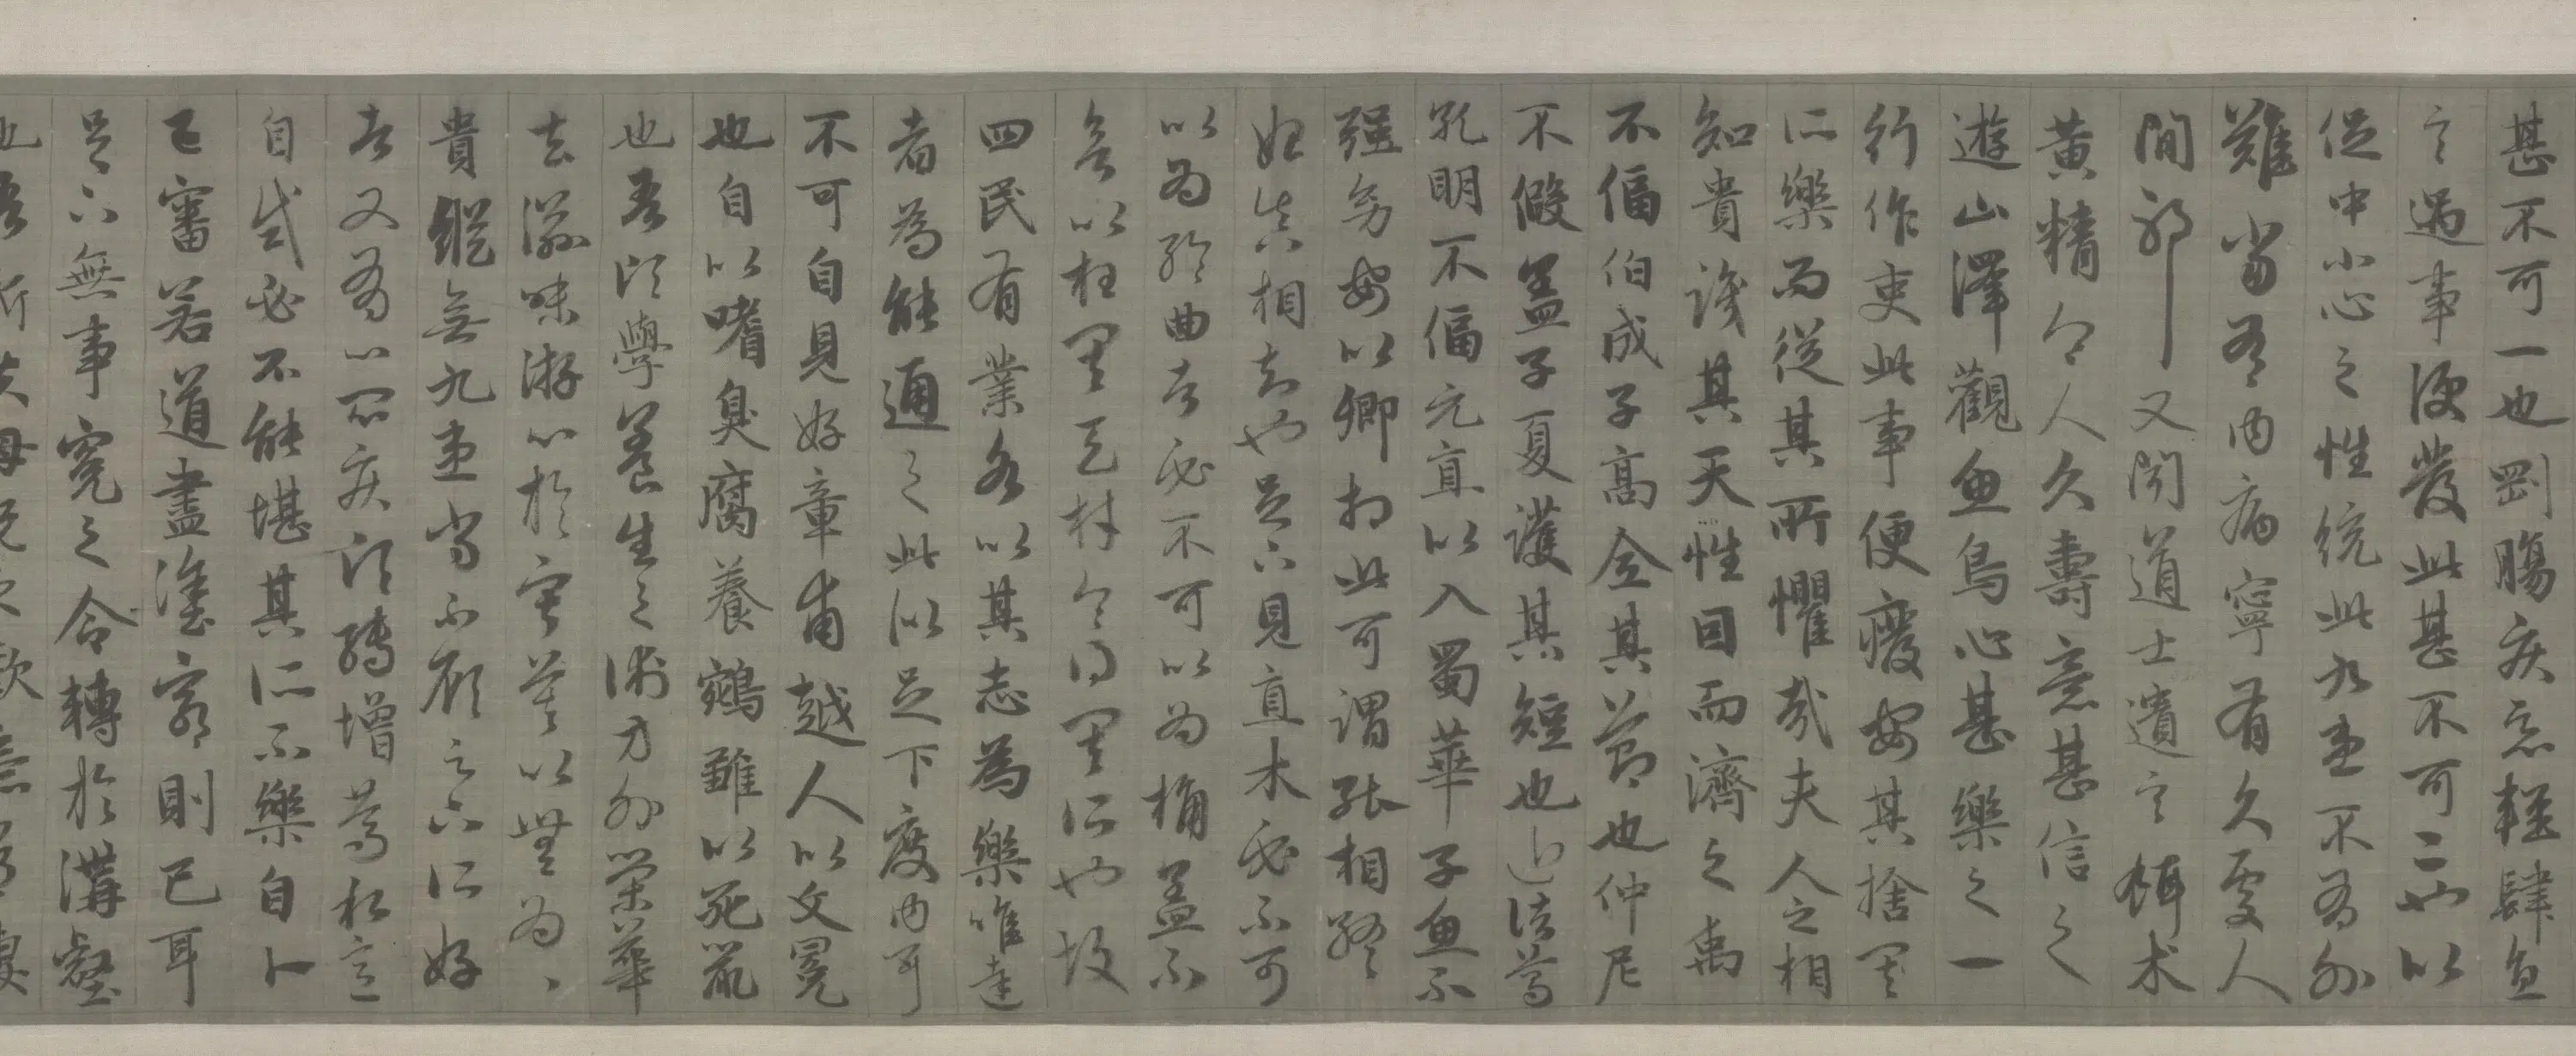 甚不可一也剛腸疾惡輕肆直
言遇事便發此甚不可二也以
促中小心之性統此九患不有外
難當有內病寧有久處人
間邪又聞道士遺言餌术
黃精令人久壽意甚信之
遊山澤觀魚鳥心甚樂之一
行作吏此事便廢安其捨其
所樂而從其所懼哉夫人之相
知貴識其天性因而濟之禹
不偪伯成子高全其節也仲尼
不假蓋子夏護其短也近諸葛
孔明不偪元直以入蜀華子魚不
強幼安以卿相此可謂能相終
始真相知也足下見直木必不可
以為輪曲者必不可以為桷蓋不
欲以枉其天材令得其所也故
四民有業各以其志為樂唯達
者為能通之此似足下度內耳
不可自見好章甫越人以文冕
也自以嗜臭腐養鵷雛以死鼠
也吾頃學養生之術方外榮華
去滋味游心於寂寞以無為為
貴縱無九患尚不顧足下所好
者又有心悶疾頃轉增篤私意
自試必不能堪其所不樂自卜
已審若道盡塗窮則已耳
足下無事冤之令轉於溝壑
也吾新失母兄之歡意常悽